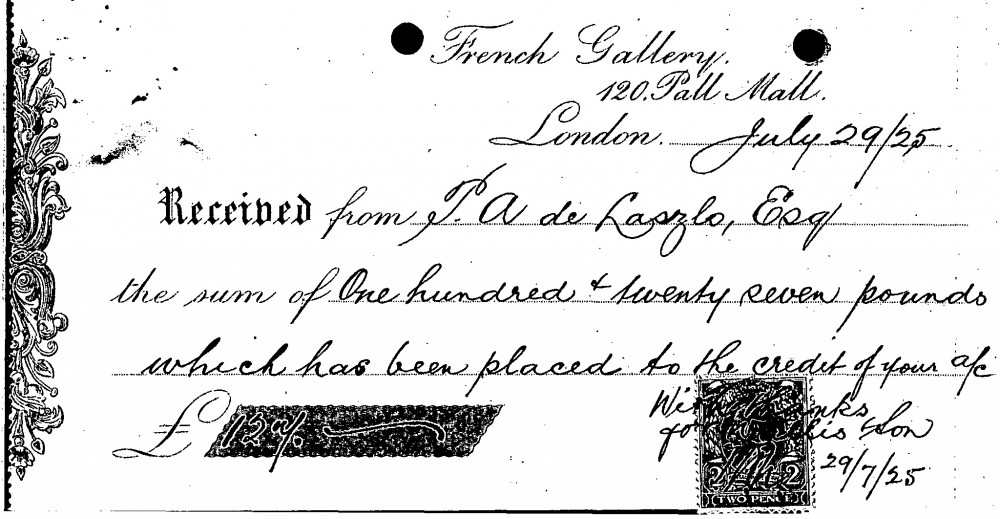 French Gallery.
120. Pall Mall.
London. July 29/25
Received from P. A de Laszlo, Esq
the sum of One hundred & twenty seven pounds
which has been placed to the credit of your a/c
£ 127/.
With thanks
Son
29/7/25
2 2
TWO PENCE